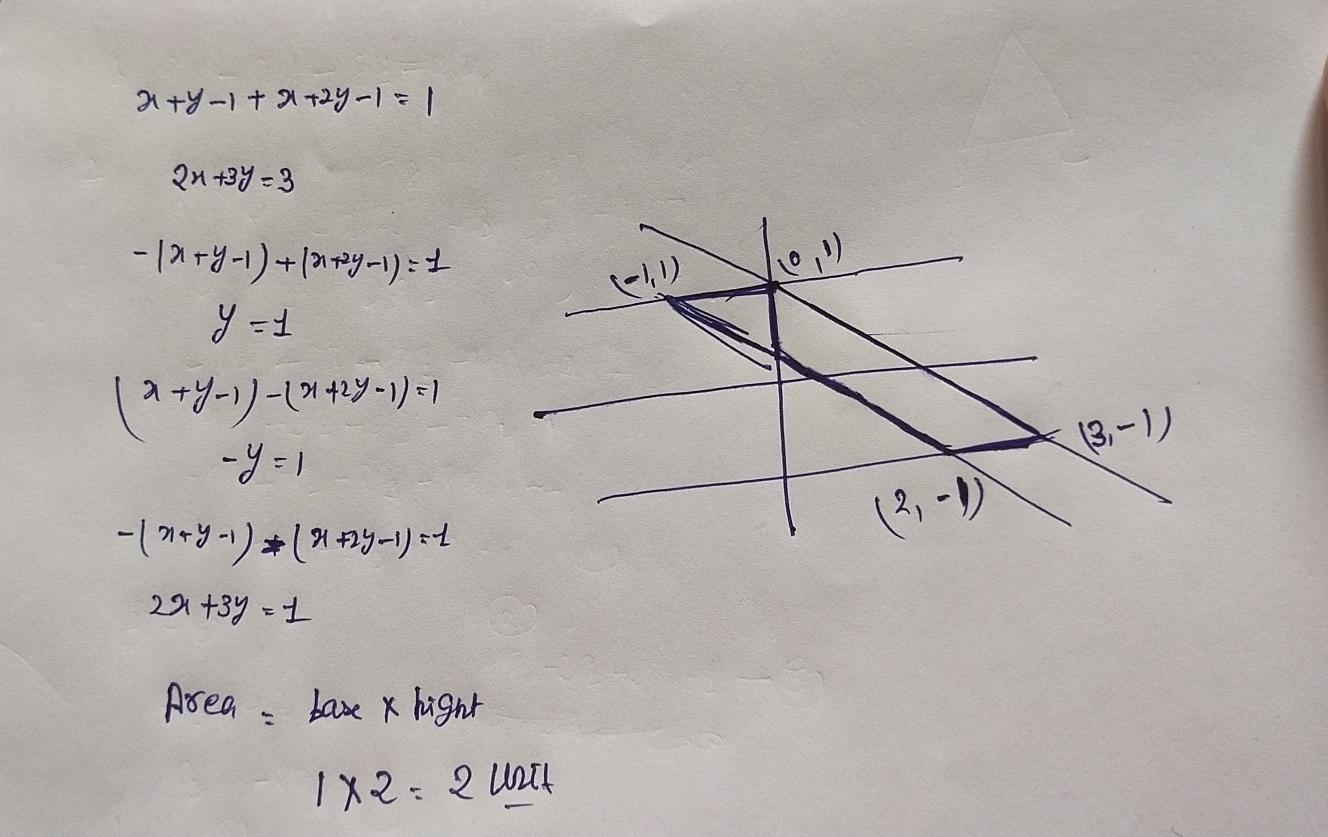 x+y-1 + x+2y-1 = 1
2x+3y=3
-(x+y-1)+(x+2y-1)=1
y=1
(x+y-1)-(x+2y-1)=1
-y=1
-(x+y-1) - (x+2y-1)=1
2x+3y=1
Area = base x hight
1 x 2 = 2 Unit
(-1,1)
(0,1)
(3,-1)
(2,-1)